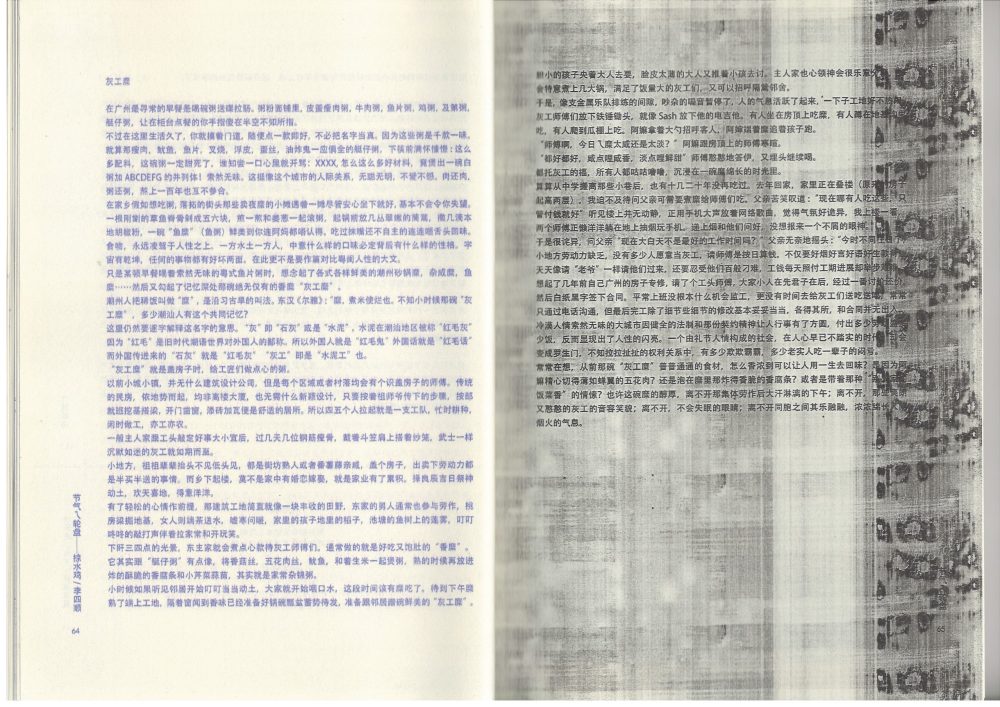 灰工糜
在广州是寻常的早餐是喝碗粥送碟拉肠。粥粉面铺里，皮蛋瘦肉粥，牛肉粥，鱼片粥，鸡粥，及第粥，
艇仔粥，让在柜台点餐的你手指傻在半空不知所指。
不过在这里生活久了，你就摸着门道，随便点一款即好，不必把名字当真。因为这些粥是千款一味，
就算那瘦肉，鱿鱼，鱼片，叉烧，浮皮，蛋丝，油炸鬼一应俱全的艇仔粥，下筷前满怀憧憬：这么
多配料，这碗粥一定甜完了，谁知尝一口心里就开骂：XXXX, 怎么这么多好材料，竟煲出一碗白
粥加 ABCDEFG 的并列体！索然无味。这挺像这个城市的人际关系，无聪无明，不爱不怨，肉还肉，
粥还粥，熬上一百年也互不参合。
在家乡假如想吃粥，落拓的街头那些卖夜糜的小摊遇着一摊尽管安心坐下就好，基本不会令你失望，
一根刚劏的草鱼脊骨剁成五六块，煎一熬和姜葱一起滚粥，起锅前放几丛翠嫩的茼蒿，撒几滴本
地胡椒粉，一碗“鱼糜”（鱼粥）鲜美到你连阿妈都唔认得，吃过抹嘴还不自主的连连咂舌头回味。
食物，永远凌驾于人性之上，一方水土一方人，中意什么样的口味必定背后有什么样的性格，宇
宙有乾坤，任何的事物都有好坏两面，在此更不是要作篇对比粤闽人性的大文。
只是某顿早餐嚼着索然无味的粤式鱼片粥时，想念起了各式各样鲜美的潮州砂锅糜，杂咸糜，鱼
糜……然后又勾起了记忆深处那碗绝无仅有的番糜“灰工糜”。
潮州人把稀饭叫做“糜”，是沿习古早的叫法，东汉《尔雅》：“糜，煮米使烂也。不知小时候那碗“灰
工糜”，多少潮汕人有这个共同记忆？
这里仍然要逐字解释这名字的意思。“灰”即“石灰”或是“水泥”，水泥在潮汕地区被称“红毛灰”
因为“红毛”是旧时代潮语世界对外国人的鄙称。所以外国人就是“红毛鬼”外国话就是“红毛话”
而外国传进来的“石灰”就是“红毛灰”“灰工”即是“水泥工”也。
“灰工糜”就是盖房子时，给工匠们做点心的粥。
以前小城小镇，并无什么建筑设计公司，但是每个区域或者村落均会有个识盖房子的师傅。传统
的民房，依地势而起，均非高楼大厦，也无需什么新颖设计，只要按着祖师爷传下的步骤，按部
就班挖基搭梁，开门凿窗，添砖加瓦便是舒适的居所。所以四五个人拉起就是一支工队，忙时耕种，
闲时做工，亦工亦农。
一般主人家跟工头敲定好事大小宜后，过几天几位钢筋瘦骨，戴着斗笠肩上搭着纱笼，武士一样
沉默如迷的灰工就如期而至。
小地方，祖祖辈辈抬头不见低头见，都是街坊熟人或者番薯藤亲戚，盖个房子，出卖下劳动力都
是半买半送的事情，而乡下起楼，莫不是家中有婚恋嫁娶，就是家业有了累积，择良辰吉日祭神
动土，欢天喜地，得意洋洋。
有了轻松的心情作前提，那建筑工地简直就像一块丰收的田野，东家的男人通常也参与劳作，桃
房梁掘地基，女人则端茶送水，嘘寒问暖，家里的孩子地里的稻子，池塘的鱼树上的莲雾，叮叮
咚咚的敲打声伴着拉家常和开玩笑。
下旰三四点的光景，东主家就会煮点心款待灰工师傅们。通常做的就是好吃又饱肚的“香糜”。
它其实跟“艇仔粥”有点像，将香菇丝，五花肉丝，鱿鱼，和着生米一起煲粥，熟的时候再放进
炸的酥脆的香腐条和小芹菜蒜菇，其实就是家常杂锦粥。
小时候如果听见邻居开始叮叮当当动土，大家就开始咽口水，这段时间该有糜吃了。待到下午糜
熟了端上工地，隔着窗闻到香味已经准备好锅碗瓢盆蓄势待发，准备跟邻居蹭碗鲜美的“灰工糜”。
节气入轮盘——绿水鸡/李四顺
64
胆小的孩子央着大人去要，脸皮太薄的大人又推着小孩去讨。主人家也心领神会很乐意
会特意煮上几大锅，满足了饭量大的灰工们，又可以招呼隔篱邻舍。
于是，像支金属乐队排练的间隙，吵杂的噪音暂停了，人的气息活跃了起来，一下子工地好不热闹
灰工师傅们放下铁锤锄头，就像 Sash 放下他的电吉他。有人坐在房顶上吃糜，有人蹲在地
吃，有人爬到瓜棚上吃。阿嫲拿着大勺招呼客人，阿嫲端着糜追着孩子跑。
“师傅啊，今日飞糜太咸还是太淡？”阿嫲跟房顶上的师傅寒暄。
“都好都好，咸点哩咸香，淡点哩鲜甜”师傅憨憨地答伊，又埋头继续喝。
都托灰工的福，所有人都咕咕噜噜，沉浸在一碗糜绵长的时光里。
算算从中学搬离那些小巷后，也有十几二十年没再吃过。去年回家，家里正在叠楼（原来的房子
起高两层），我迫不及待问父亲可需要煮糜给师傅们吃。父亲苦笑叹道：“现在哪有人吃这些，只
管付钱就好”听见楼上并无动静，正用手机大声放着网络歌曲，觉得气氛好诡异，我上楼一看
两个师傅正懒洋洋躺在地上抽烟玩手机。递上烟和他们问好，没想报来一个不屑的眼神。
于是很诧异，问父亲“现在大白天不是最好的工作时间吗？”父亲无奈地摇头：“今时不同往
小地方劳动力缺乏，没有多少人愿意当灰工，请师傅是按日算钱。不仅要好烟好言好语好生
天天像请“老爷”一样请他们过来，还要忍受他们百般刁难，工钱每天照付工期进展却举步
想起了几年前自己广州的房子专修，请了个工头师傅，大家小人在先君子在后，经过一番讨论还价
然后白纸黑字签下合同。平常上班没根本什么机会监工，更没有时间去给灰工们送吃送喝，常常
只通过电话沟通，但最后完工除了细节些细节的修改基本妥妥当当，各得其所，和合同并无出入
冷漠人情索然无味的大城市因健全的法制和那份契约精神让人行事有了方圆，付出多少
少饭，反而显现出了人性的闪亮。一个由礼节人情构成的社会，在人心早已不踏实的时
变成罗生门，不知拉拉扯扯的权利关系中，有多少欺欺霸霸，多少老实人吃一辈子的闷亏。
常常在想，从前那碗“灰工糜”普普通通的食材，怎么香浓到可以让人用一生去回味？是因为阿
嫲精心切得薄如蝉翼的五花肉？还是泡在糜里那炸得香脆的香腐条？或者是带着那种
饭菜香”的情愫？也许这碗糜的醇厚，离不开那集体劳作后大汗淋漓的下午；离不开，那些
又憨憨的灰工的音容笑貌；离不开，不会失眠的眼睛；离不开同胞之间其乐融融，浓浓
烟火的气息。
65